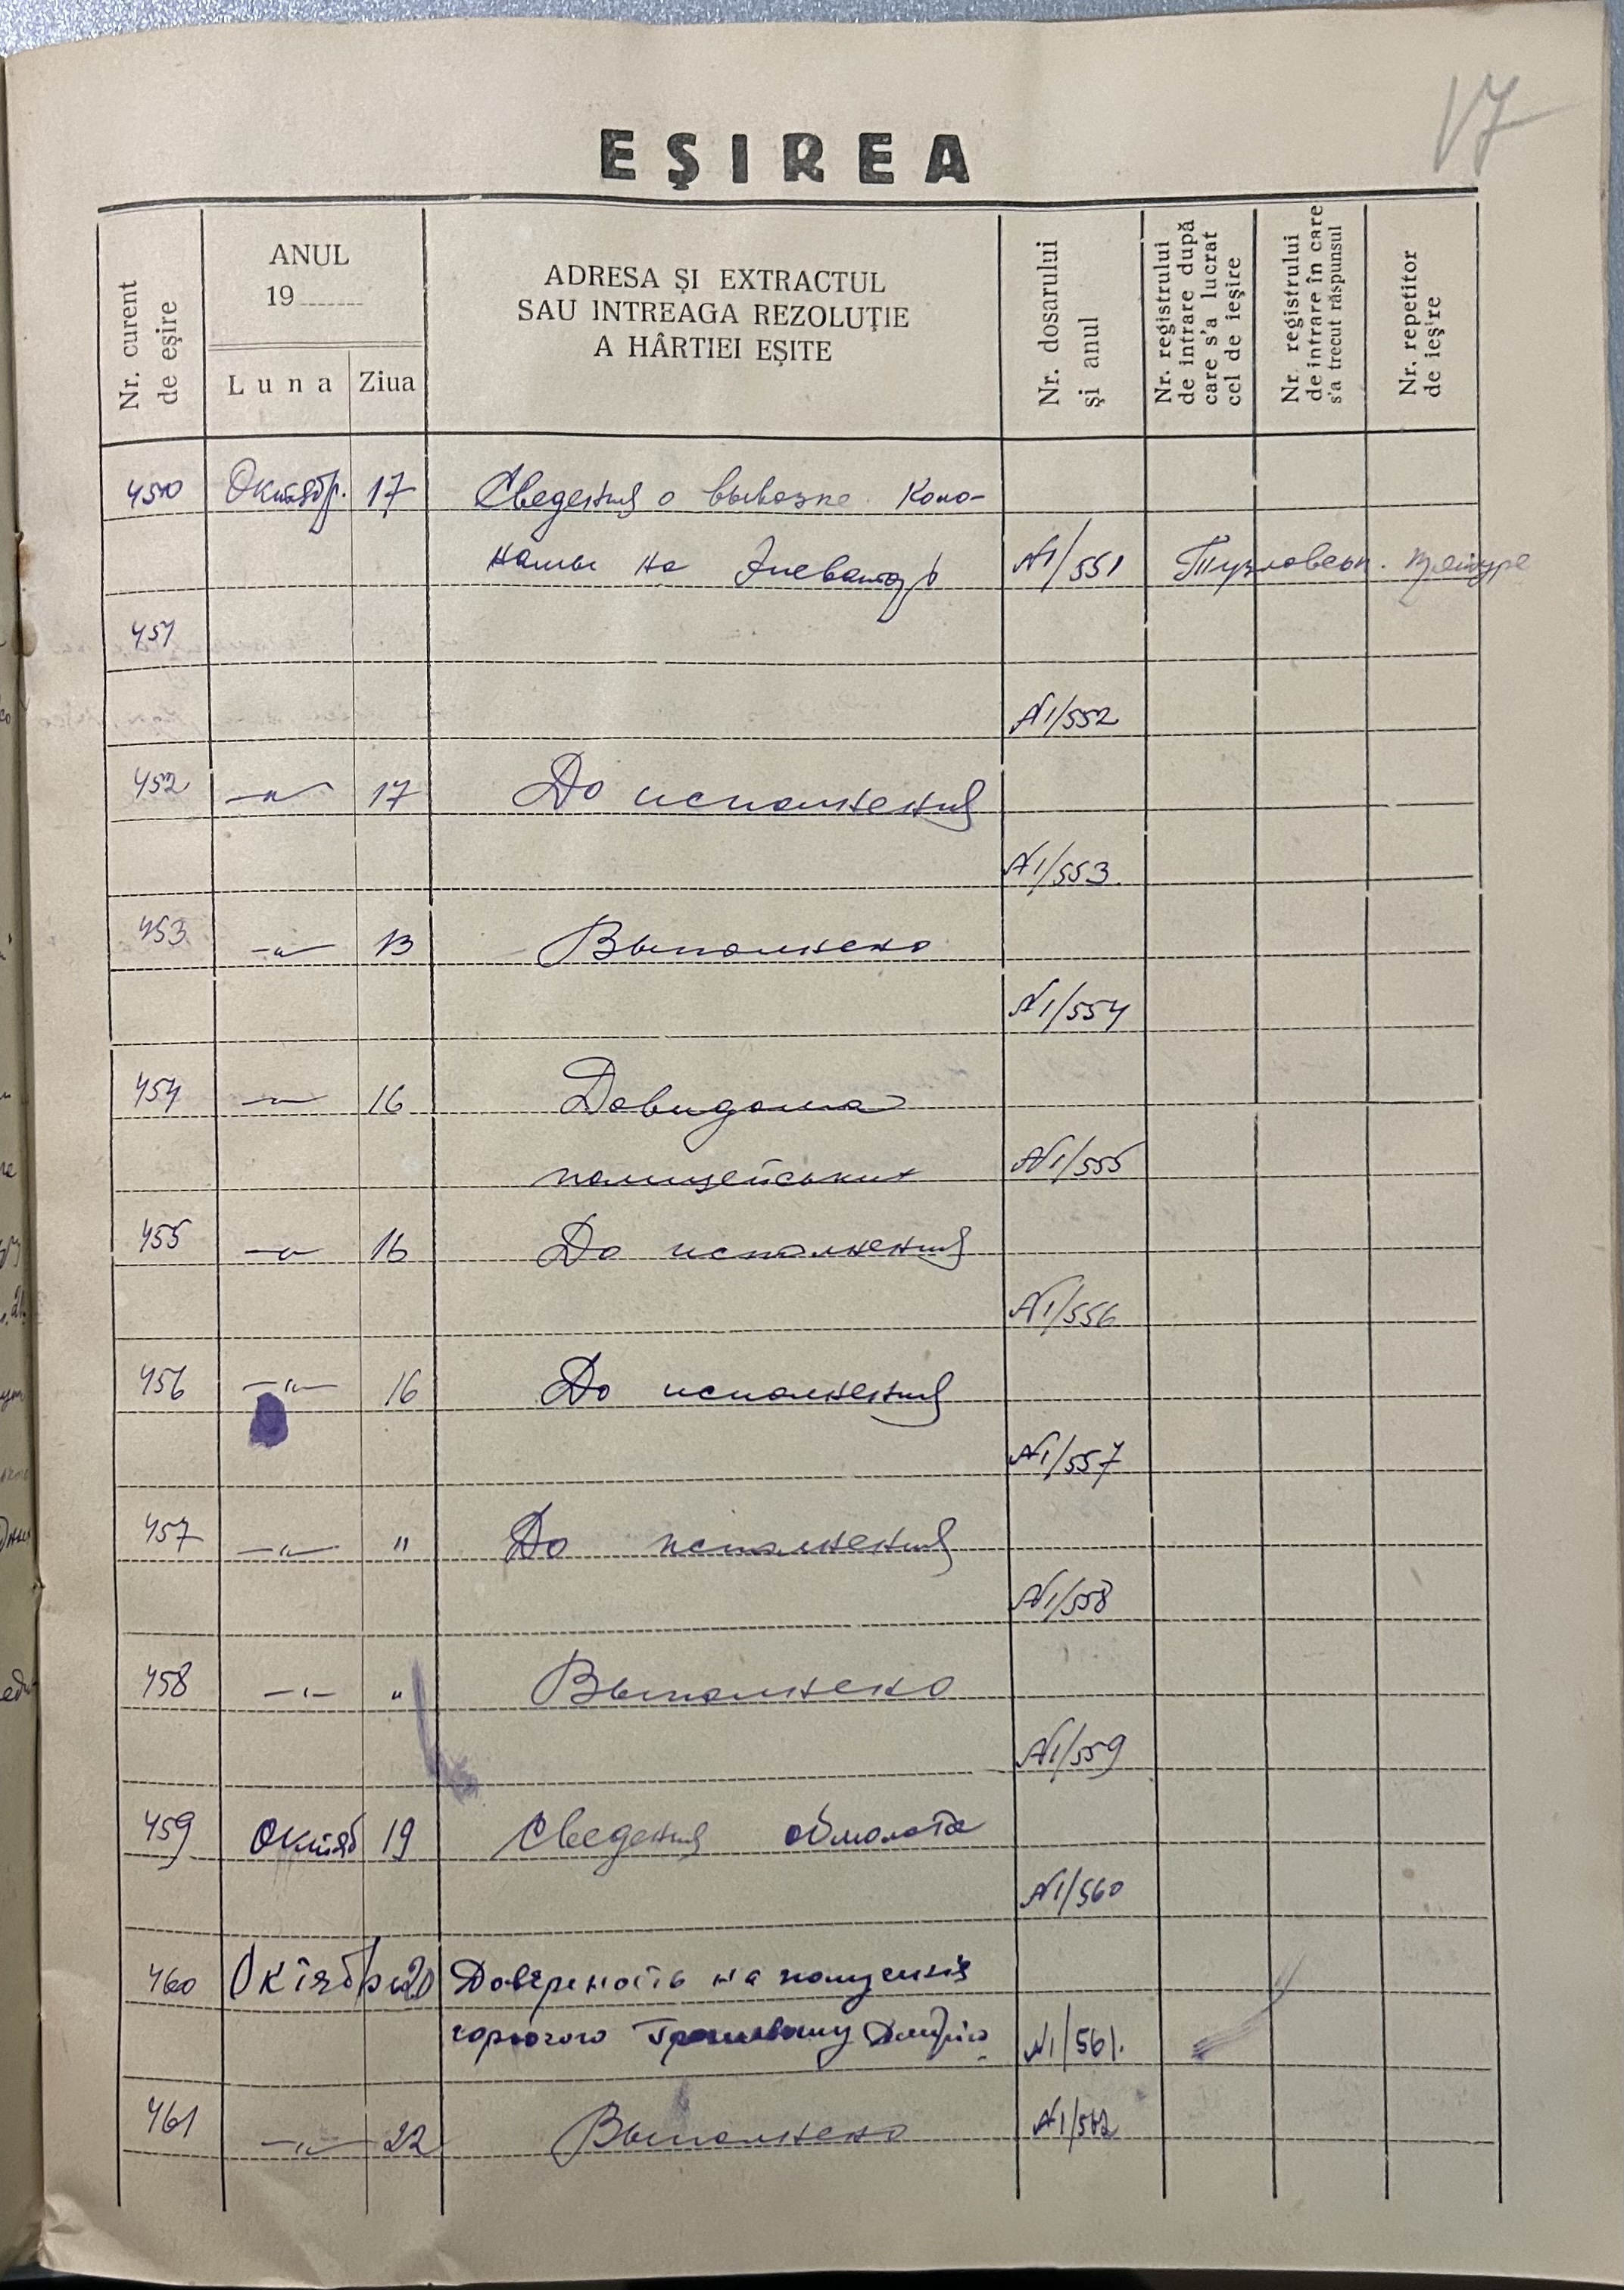 17
EŞIREA
Nr. curent de eşire
ANUL
19
Luna
Ziua
ADRESA ŞI EXTRACTUL
SAU INTREAGA REZOLUŢIE
A HÂRTIEI EŞITE
Nr. dosarului
şi anul
Nr. registrului
de intrare după
care s'a lucrat
cel de ieşire
Nr. registrului
de intrare în care
s'a trecut răspunsul
Nr. repetitor
de ieşire
450 Октябр. 17 Сведения о вывозке коно-
намы на Элеватор №1/551
451
№1/552
452 —"— 17 До исполнения
№1/553.
453 —"— 13 Выполнено
№1/554
454 —"— 16 Довидома
полицейських №1/555
455 —"— 16 До исполнения
№1/556
456 —"— 16 До исполнения
№1/557
457 —"— " До исполнения
№1/558
458 —"— " Выполнено
№1/559
459 Октяб 19 Сведения обмолота
№1/560
460 Октября 20 Довереность на полученія
горючого Дмитрію №1/561.
461 —"— 22 Выполнено №1/562